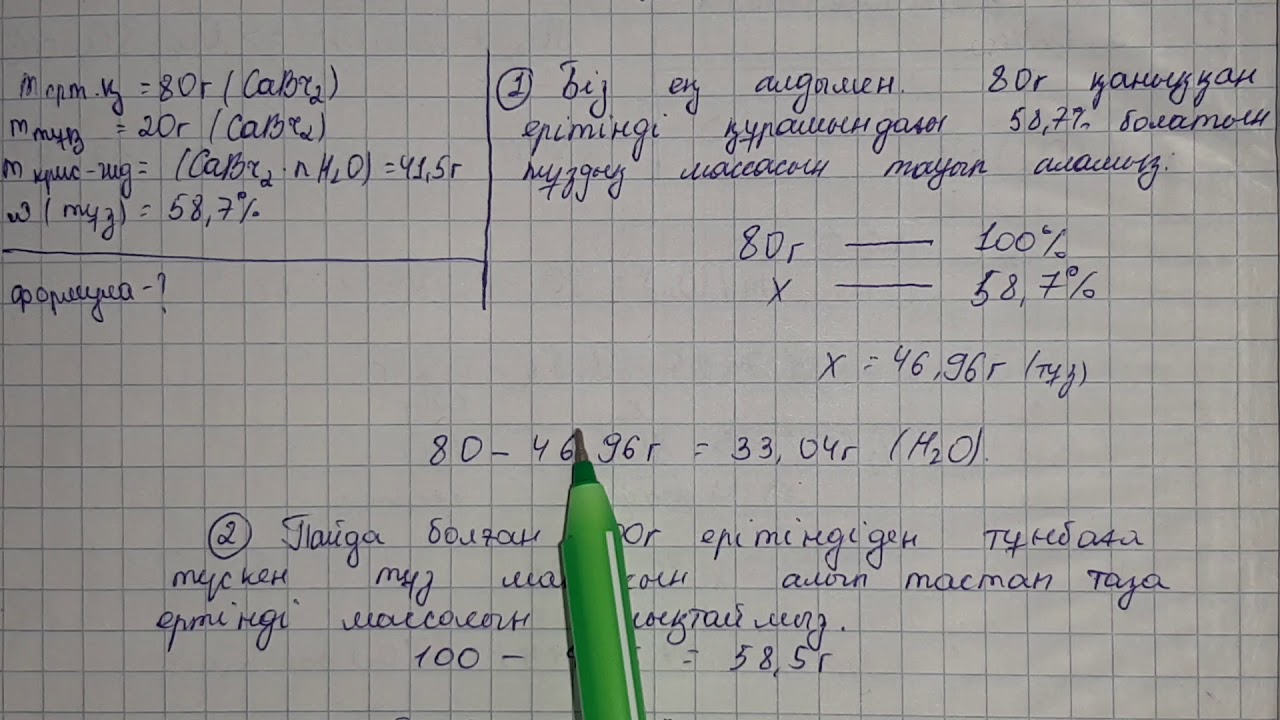 mерт.қ = 80г (CaBr₂)
mтұз = 20г (CaBr₂)
mкрис-гид = (CaBr₂·nH₂O) = 41,5г
ω (тұз) = 58,7%
формула - ?
① Біз ең алдымен. 80г қаныққан
ерітінді құрамындағы 58,7% болатын
тұздың массасын тауып аламыз:
80г — 100%
X — 58,7%
X = 46,96г (тұз)
80 - 46,96г = 33,04г (H₂O).
② Пайда болған ерітіндіден тұнбаға
түскен тұз алып тастап таза
ертінді массасын
100 - = 58,5г